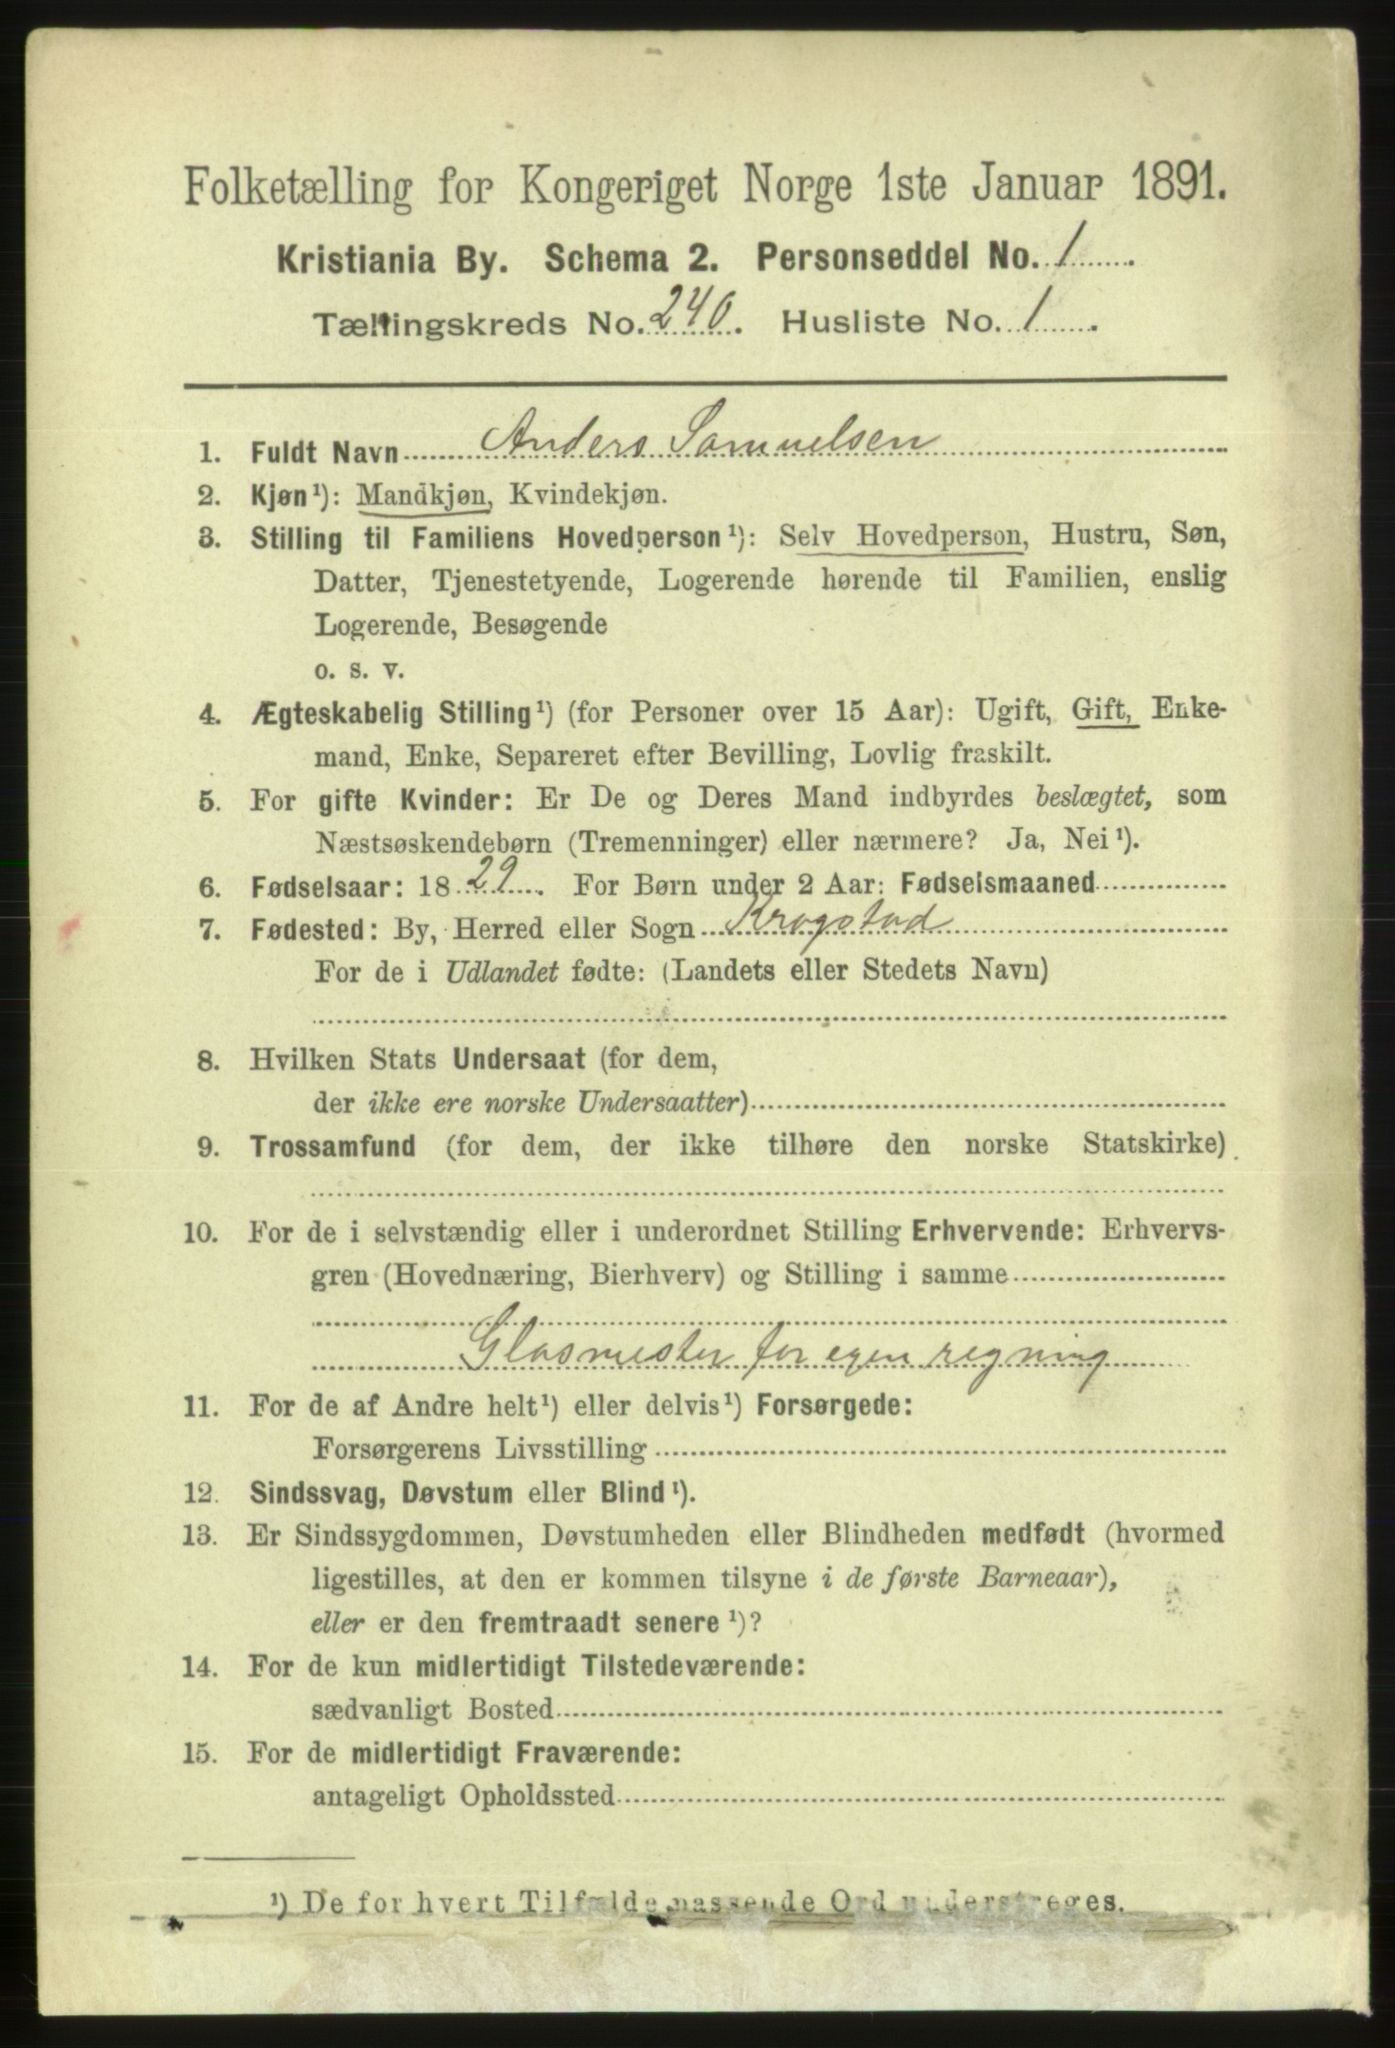 Folketælling for Kongeriget Norge 1ste Januar 1891.
Kristiania By. Schema 2. Personseddel No. 1.
Tællingskreds No. 240. Husliste No. 1.
1. Fuldt Navn Anders Samuelsen
2. Kjøn¹): Mandkjøn, Kvindekjøn.
3. Stilling til Familiens Hovedperson¹): Selv Hovedperson, Hustru, Søn,
Datter, Tjenestetyende, Logerende hørende til Familien, enslig
Logerende, Besøgende
o. s. v.
4. Ægteskabelig Stilling¹) (for Personer over 15 Aar): Ugift, Gift, Enke-
mand, Enke, Separeret efter Bevilling, Lovlig fraskilt.
5. For gifte Kvinder: Er De og Deres Mand indbyrdes beslægtet, som
Næstsøskendebørn (Tremenninger) eller nærmere? Ja, Nei¹).
6. Fødselsaar: 1829. For Børn under 2 Aar: Fødselsmaaned
7. Fødested: By, Herred eller Sogn Krogstad
For de i Udlandet fødte: (Landets eller Stedets Navn)
8. Hvilken Stats Undersaat (for dem,
der ikke ere norske Undersaatter)
9. Trossamfund (for dem, der ikke tilhøre den norske Statskirke)
10. For de i selvstændig eller i underordnet Stilling Erhvervende: Erhvervs-
gren (Hovednæring, Bierhverv) og Stilling i samme
Glasmester for egen regning
11. For de af Andre helt¹) eller delvis¹) Forsørgede:
Forsørgerens Livsstilling
12. Sindssvag, Døvstum eller Blind¹).
13. Er Sindssygdommen, Døvstumheden eller Blindheden medfødt (hvormed
ligestilles, at den er kommen tilsyne i de første Barneaar),
eller er den fremtraadt senere¹)?
14. For de kun midlertidigt Tilstedeværende:
sædvanligt Bosted
15. For de midlertidigt Fraværende:
antageligt Opholdssted
¹) De for hvert Tilfælde passende Ord understreges.